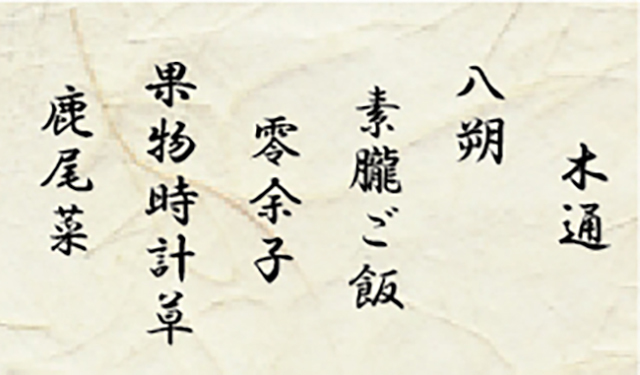 木通
八朔
素朧ご飯
零余子
果物時計草
鹿尾菜